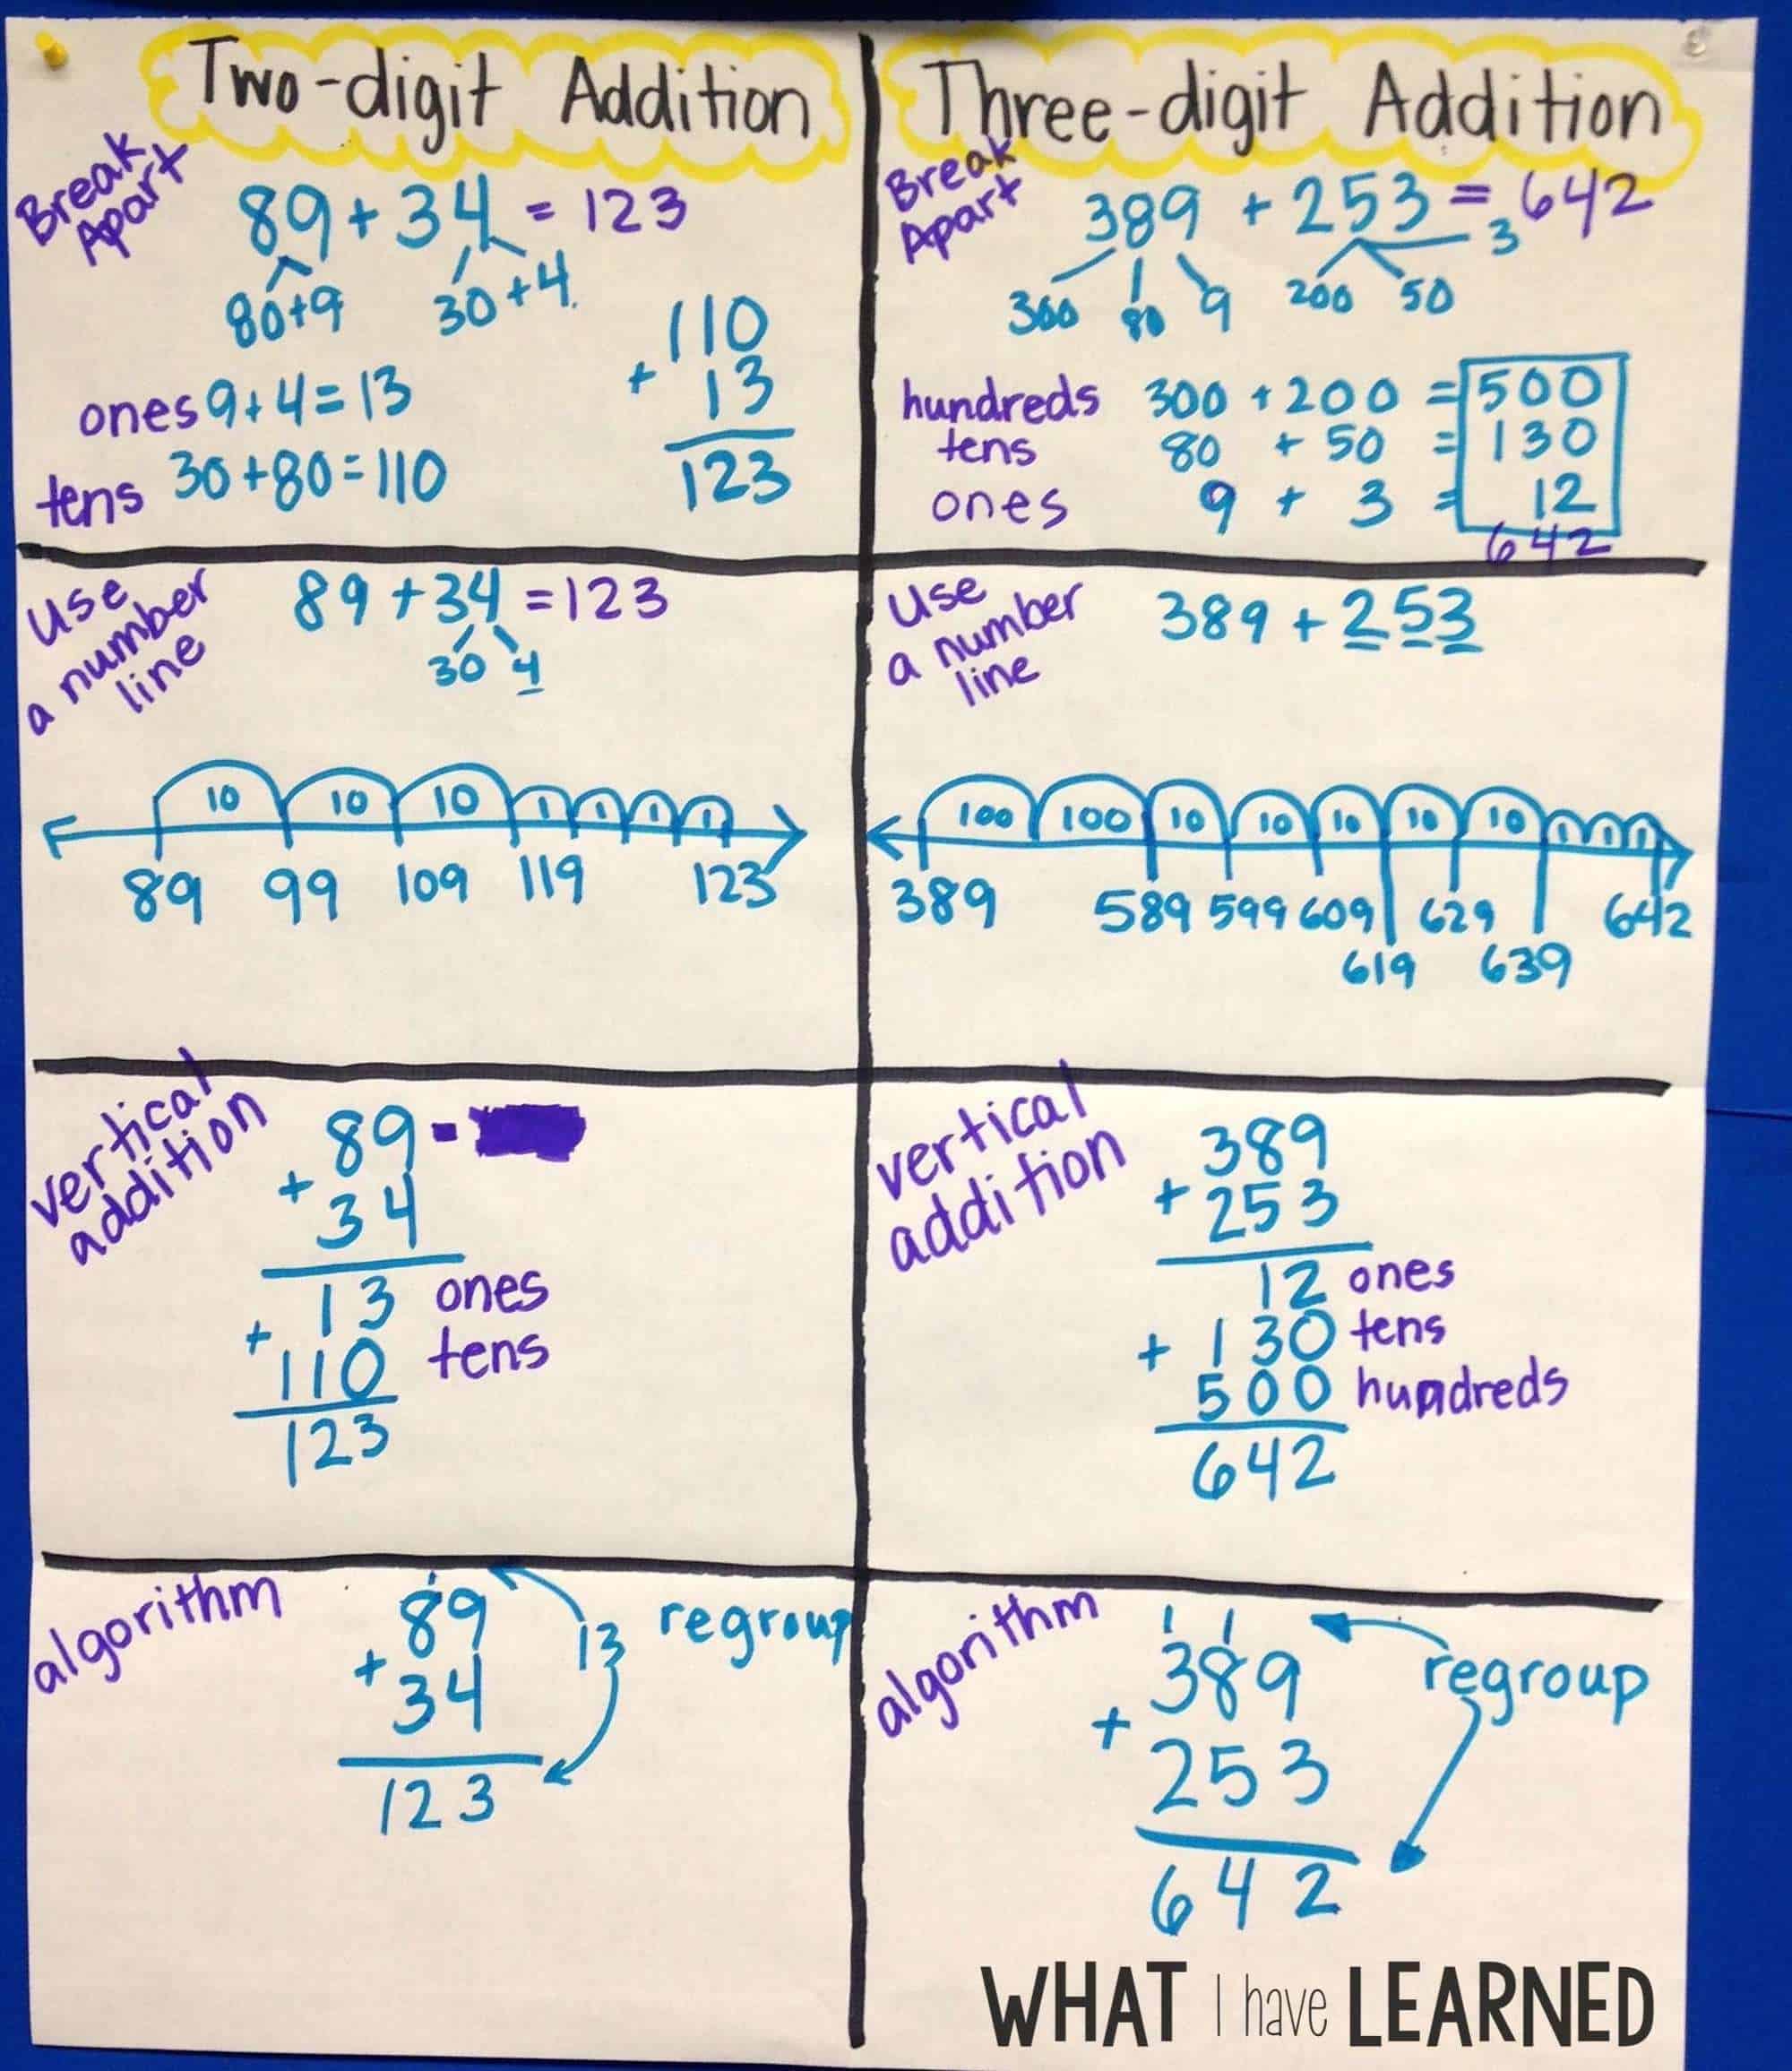 Two-digit Addition
Break
Apart
89 + 34 = 123
80+9 30+4
110
+ 13
123
ones 9+4=13
tens 30+80=110
Use
a number
line
89 + 34 = 123
30 4
10 10 10 1 1 1 1
89 99 109 119 123
vertical
addition
89 -
+ 34
13 ones
+ 110 tens
123
algorithm
1
89
+ 34
123
13 regroup
Three-digit Addition
Break
Apart
389 + 253 = 642
300 80 9 200 50 3
hundreds 300 + 200 = 500
tens 80 + 50 = 130
ones 9 + 3 = 12
642
Use
a number
line
389 + 253
100 100 10 10 10 10 10 1 1 1
389 589 599 609 629 642
619 639
vertical
addition
389
+ 253
12 ones
+ 130 tens
500 hundreds
642
algorithm
1 1
389
+ 253
642
regroup
WHAT I have LEARNED